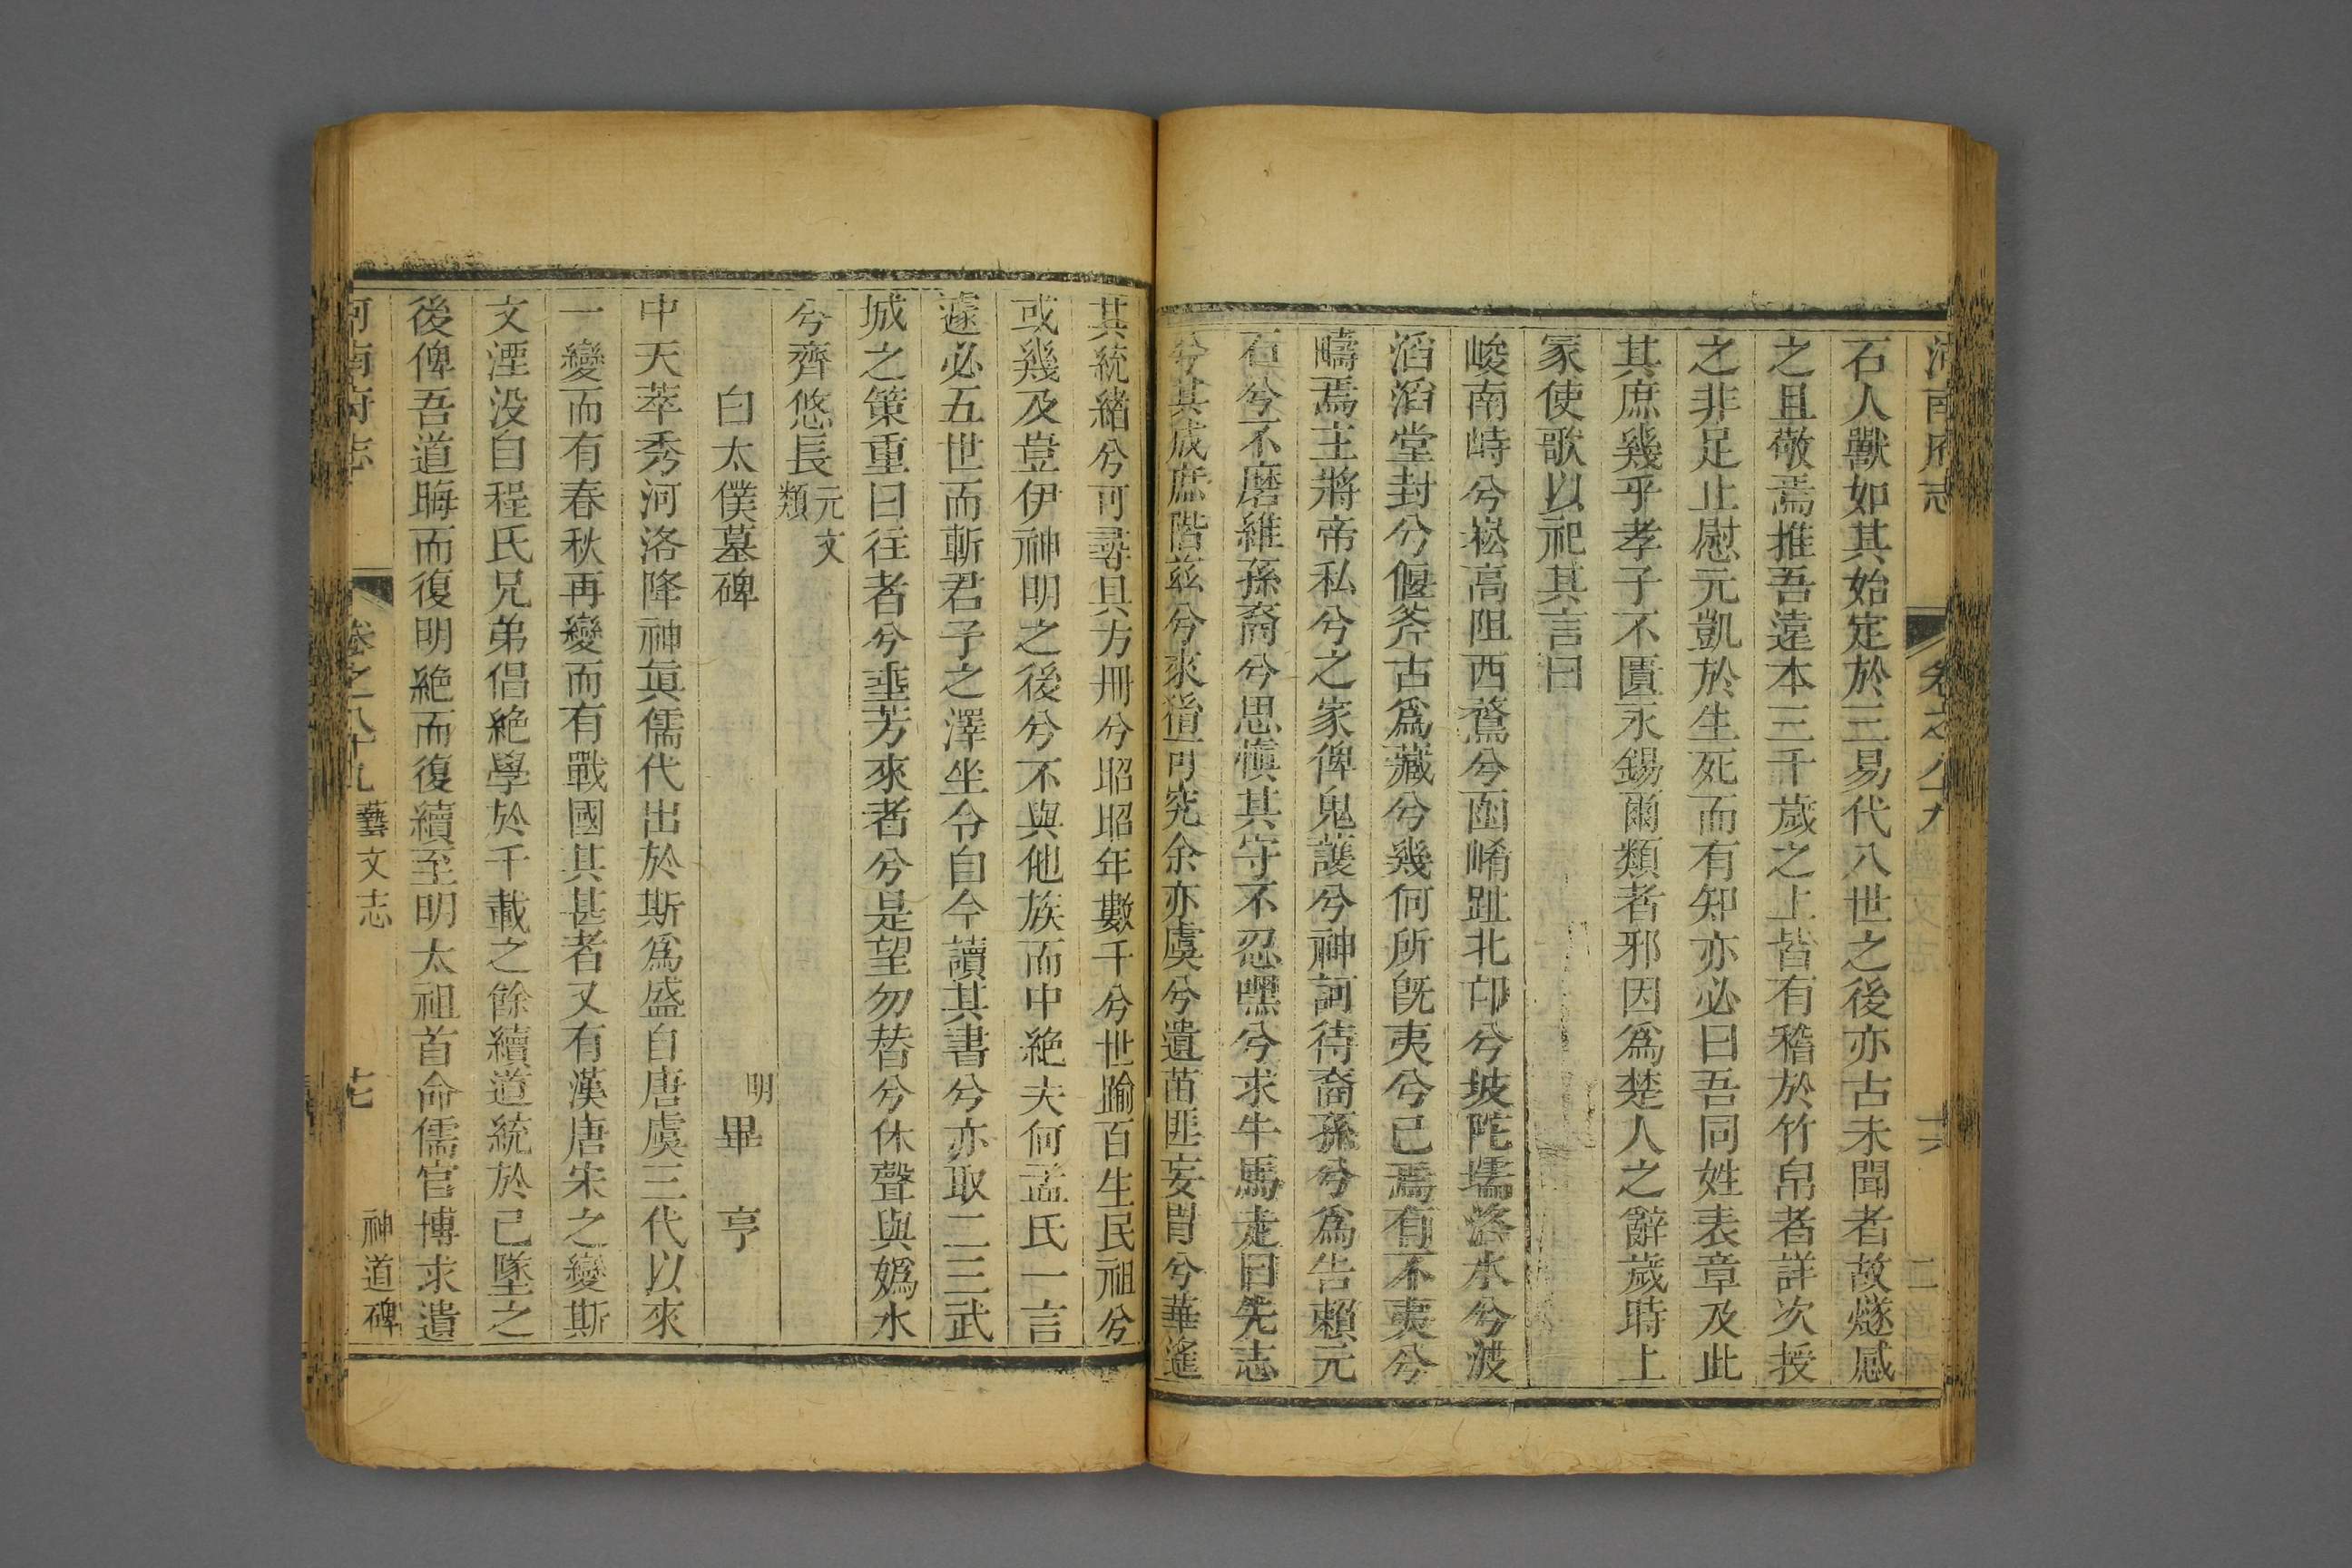 河南府志 卷之八十九
石人獸如其始定於三易代八世之後亦古未聞者故燧感
之且敬焉推吾遠本三千歲之上皆有稽於竹帛者詳次授
之非足止慰元凱於生死而有知亦必曰吾同姓表章及此
其庶幾乎孝子不匱永錫爾類者邪因爲楚人之辭歲時上
冡使歌以祀其言曰
峻南峙兮崧高阻西騖兮函崤趾北邙兮坡陀壖洛水兮波
滔滔堂封兮偃斧古爲藏兮幾何所旣夷兮已焉有不夷兮
疇焉主將帝私兮之家俾鬼護兮神訶待裔孫兮爲告賴元
石兮不磨維孫裔兮思愼其守不忍嘿兮求牛馬走曰先志
兮其成庶階兹兮來者可究余亦虞兮遺苗匪妄胄兮華遙
其統緒兮可尋具方冊兮昭昭年數千兮世踰百生民祖兮
或幾及豈伊神明之後兮不與他族而中絶夫何孟氏一言
遽必五世而斬君子之澤坐令自今讀其書兮亦取二三武
城之策重曰往者兮垂芳來者兮是望勿替兮休聲與嬀水
兮齊悠長 元文類
白太僕墓碑 明 畢亨
中天萃秀河洛降神眞儒代出於斯爲盛自唐虞三代以來
一變而有春秋再變而有戰國其甚者又有漢唐宋之變斯
文湮没自程氏兄弟倡絶學於千載之餘續道統於已墜之
後俾吾道晦而復明絶而復續至明太祖首命儒官博求遺
河南府志 卷之八十九 藝文志 神道碑